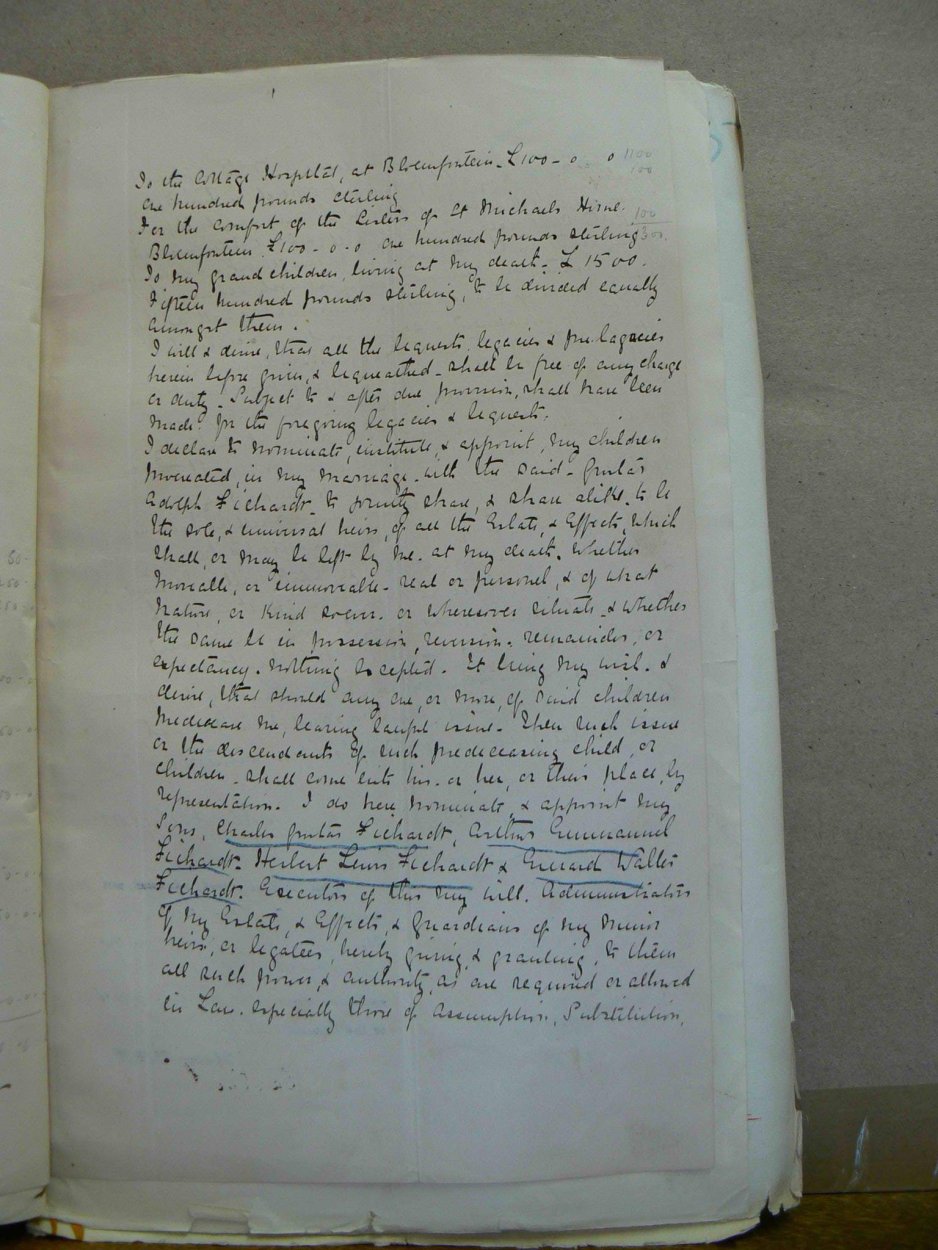 To the Cottage Hospital, at Bloemfontein - £100 - 0 0 1100
one hundred pounds sterling 100
For the comfort of the Sisters of St Michaels Home. 100
Bloemfontein £100 - 0 - 0 one hundred pounds sterling 300.
To my grand children, living at my death - £1500.
Fifteen hundred pounds sterling, to be divided equally
amongst them.
I will & desire, that all the bequests, legacies & prelegacies
herein before given, & bequeathed - shall be free of any charge
or duty - Subject to & after due provision, shall have been
made for the foregoing legacies & bequests.
I declare to nominate, institute, & appoint, my children
procreated, in my marriage, with the said - Gustav
Adolph Fichardt - to jointly share, & share alike, to be
the sole, & universal heirs, of all the Estate, & Effects, which
shall, or may be left by me - at my death. Whether
moveable, or immoveable - real or personal, & of what
nature, or kind soever - or wheresoever situate, & whether
the same be in possession, reversion, remainder, or
expectancy. nothing excepted. It being my will, &
desire, that should any one, or more, of said children
predecease me, leaving lawful issue - then such issue
or the descendants of such predeceasing child, or
children - shall come into his - or her, or their place, by
representation. I do here, nominate, & appoint my
Sons, Charles Gustav Fichardt, Arthur Emmanuel
Fichardt - Herbert Lewis Fichardt & Everard Walter
Fichardt. Executors of this my will. Administrators
of my Estate, & Effects, & Guardians of my minor
heirs, or legatees, hereby giving, & granting, to them
all such power, & authority, as are required or allowed
in Law. especially those of Assumption, Substitution,